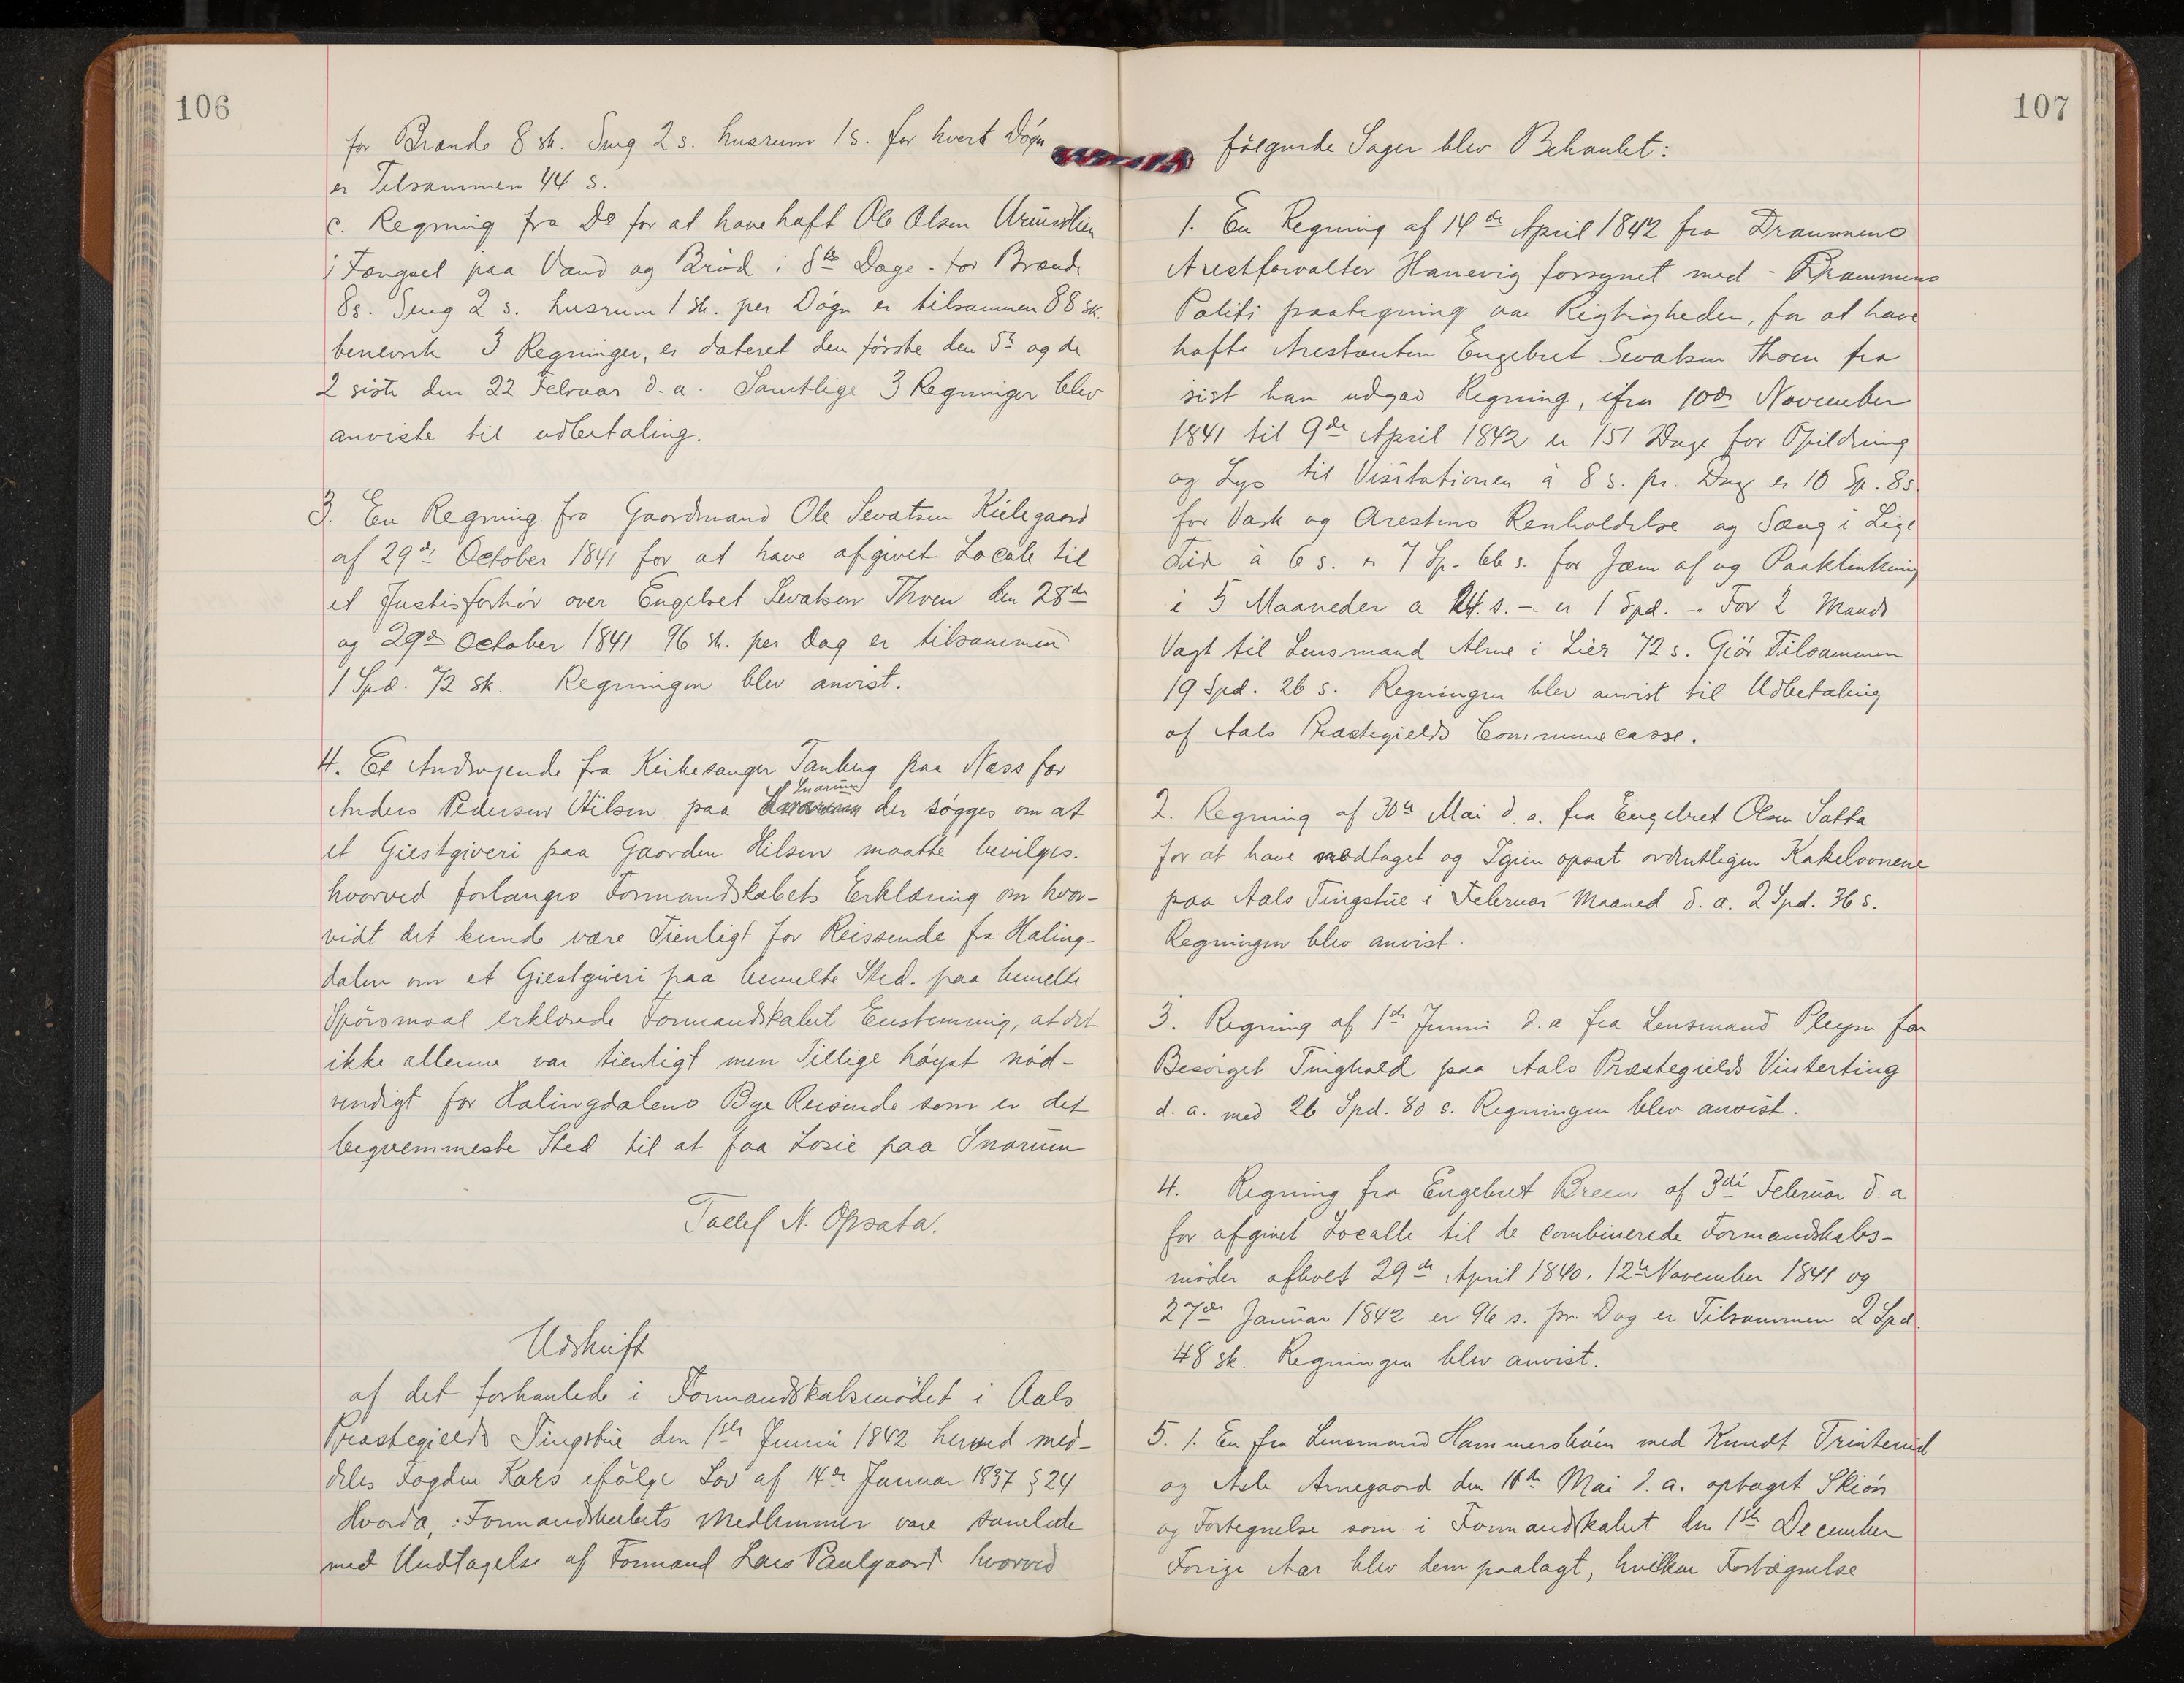 106
for Brænde 8 sk. Seng 2 s. husrum 1 s. for hvert Døgn
er Tilsammen 44 s.
c. Regning fra Do for at have haft Ole Olsen
i Fængsel paa Vand og Brød i 8te Dage. for Brænde
8 s. Seng 2 s. husrum 1 sk. per Døgn er tilsammen 88 sk.
benevnte 3 Regninger, er dateret den første den 5te og de
2 siste den 22 Februar d. a. Samtlige 3 Regninger blev
anviste til udbetaling.
3. En Regning fra Gaardmand Ole Sevatsen Kirkegaard
af 29de October 1841 for at have afgivet Locale til
et Justisforhør over Engebret Sevatsen Thoen den 28de
og 29de October 1841 96 sk. per Dag er tilsammen
1 Spd. 72 sk. Regningen blev anvist.
4. Et Andragende fra Kirkesanger Tanberg paa Næss for
Snarum
Anders Pedersen Hilsen paa der søgges om at
et Giestgiveri paa Gaarden Hilsen maatte bevilges.
hvorved forlanges Formandskabets Erklæring om hvor-
vidt det kunde være Tienligt for Reissende fra Haling-
dalen om et Giestgiveri paa bemelte Sted. paa bemelte
Spørsmaal erklærede Formandskabet Enstemmig, at det
ikke allenne var tienligt men Tillige høyst nød-
vendigt for Halingdalens Bye Reisende som er det
beqvemmeste Sted til at faa Losie paa Snarum
Tollef N. Opsata.
Udskrift
af det forhanlede i Formandskabsmødet i Aals
Præstegields Tingstue den 1ste Junni 1842 herved med-
deles Fogden Kars ifølge Lov af 14de Januar 1837 § 24
Hvorda, Formandskabets Medlemmer vare samlede
med Undtagelse af Formand Lars Paulgaard hvorved
107
følgende Sager blev Behanlet:
1. En Regning af 14de April 1842 fra Drammens
Arestforvalter Hanevig forsynet med - Drammens
Politi paategning om Rigtigheden, for at have
hafte Arestanten Engebret Sevatsen Thoen fra
sist han udgav Regning, ifra 10de November
1841 til 9de April 1842 er 151 Dage for Opildning
og Lys til Visitationen à 8 s. pr. Dag er 10 Sp. 8 s.
for Vask og Arestens Renholdelse og Sæng i Lige
Tid à 6 s. er 7 Sp. 66 s. for Jæm af og Paaklinkning
i 5 Maaneder a 24 s. - er 1 Spd. - For 2 Mands
Vagt til Lensmand Alme i Lier 72 s. Giør Tilsammen
19 Spd. 26 s. Regningen blev anvist til Udbetaling
af Aals Præstegields Communecasse.
2. Regning af 30te Mai d. a. fra Engebret Olsen Satta
for at have nedtaget og Igien opsat ordentligen Kakelovnene
paa Aals Tingstue i Februar Maaned d. a. 2 Spd. 36 s.
Regningen blev anvist.
3. Regning af 1ste Junni d. a fra Lensmand Pleym for
Besørget Tinghold paa Aals Præstegields Vinterting
d. a. med 26 Spd. 80 s. Regningen blev anvist.
4. Regning fra Engebret Breen af 3di Februar d. a
for afgivet Localle til de combinerede Formandskabs-
møder afholt 29de April 1840. 12te November 1841 og
27de Januar 1842 er 96 s. pr. Dag er Tilsammen 2 Spd.
48 sk. Regningen blev anvist.
5. 1. En fra Lensmand Hammersbøen med Knudt Trinterud
og Asle Arnegaard den 16de Mai d. a. optaget Skiøn
og Fortegnelse som i Formandskabet den 1ste December
Forige Aar blev dem paalagt, hvilken Fortægnelse